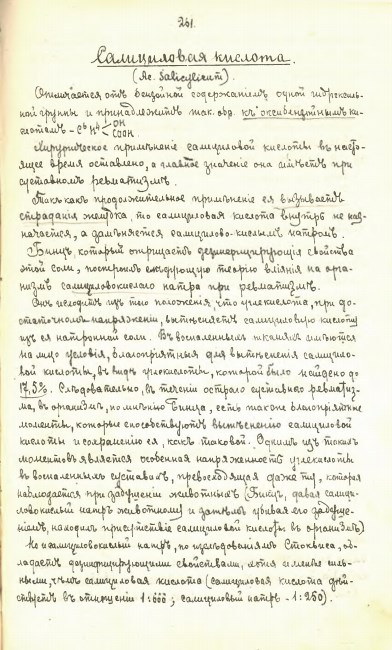 251.
Салициловая кислота.
(Ac. Salicylicum)
Отличается отъ бензойной содержаніемъ одной гидроксиль-
ной группы и принадлежитъ такъ обр. къ оксибензойнымъ ки-
слотамъ - C⁶H⁴ < OH COOH.
Хирургическое примѣненіе салициловой кислоты въ насто-
ящее время оставлено, а главное значеніе она имѣетъ при
суставномъ ревматизмѣ.
Такъ какъ продолжительное примѣненіе ея вызываетъ
страданія желудка, то салициловая кислота внутрь не наз-
начается, а замѣняется салицилово-кислымъ натромъ.
Бинцъ, который отрицаетъ дезинфицирующія свойства
этой соли, построилъ слѣдующую теорію вліянія на орга-
низмъ салициловокислаго натра при ревматизмѣ.
Онъ исходитъ изъ того положенія что углекислота, при до-
статочномъ напряженіи, вытѣсняетъ салициловую кислоту
изъ ея натронной соли. Въ воспаленныхъ тканяхъ имѣются
на лицо условія, благопріятныя для вытѣсненія салицило-
вой кислоты, въ видѣ углекислоты, которой было найдено до
17,5%. Слѣдовательно, въ теченіи остраго суставнаго ревматиз-
ма, въ организмѣ, по мнѣнію Бинца, есть такіе благопріятные
моменты, которые способствуютъ вытѣсненію салициловой
кислоты и сохраненію ея, какъ таковой. Однимъ изъ такихъ
моментовъ является особенная напряженность углекислоты
въ воспаленныхъ суставахъ, превосходящая даже ту, которая
наблюдается при задушеніи животныхъ (Бинцъ, давая салици-
ловокислый натръ животному и затѣмъ убивая его задуше-
ніемъ, находилъ присутствіе салициловой кислоты въ организмѣ)
Но и салициловокислый натръ, по изслѣдованіямъ Стоквиса, об-
ладаетъ дезинфицирующими свойствами, хотя и менѣе силь-
ными, чѣмъ салициловая кислота (салициловая кислота дѣй-
ствуетъ въ отношеніи 1:666; салициловый натръ - 1:250).